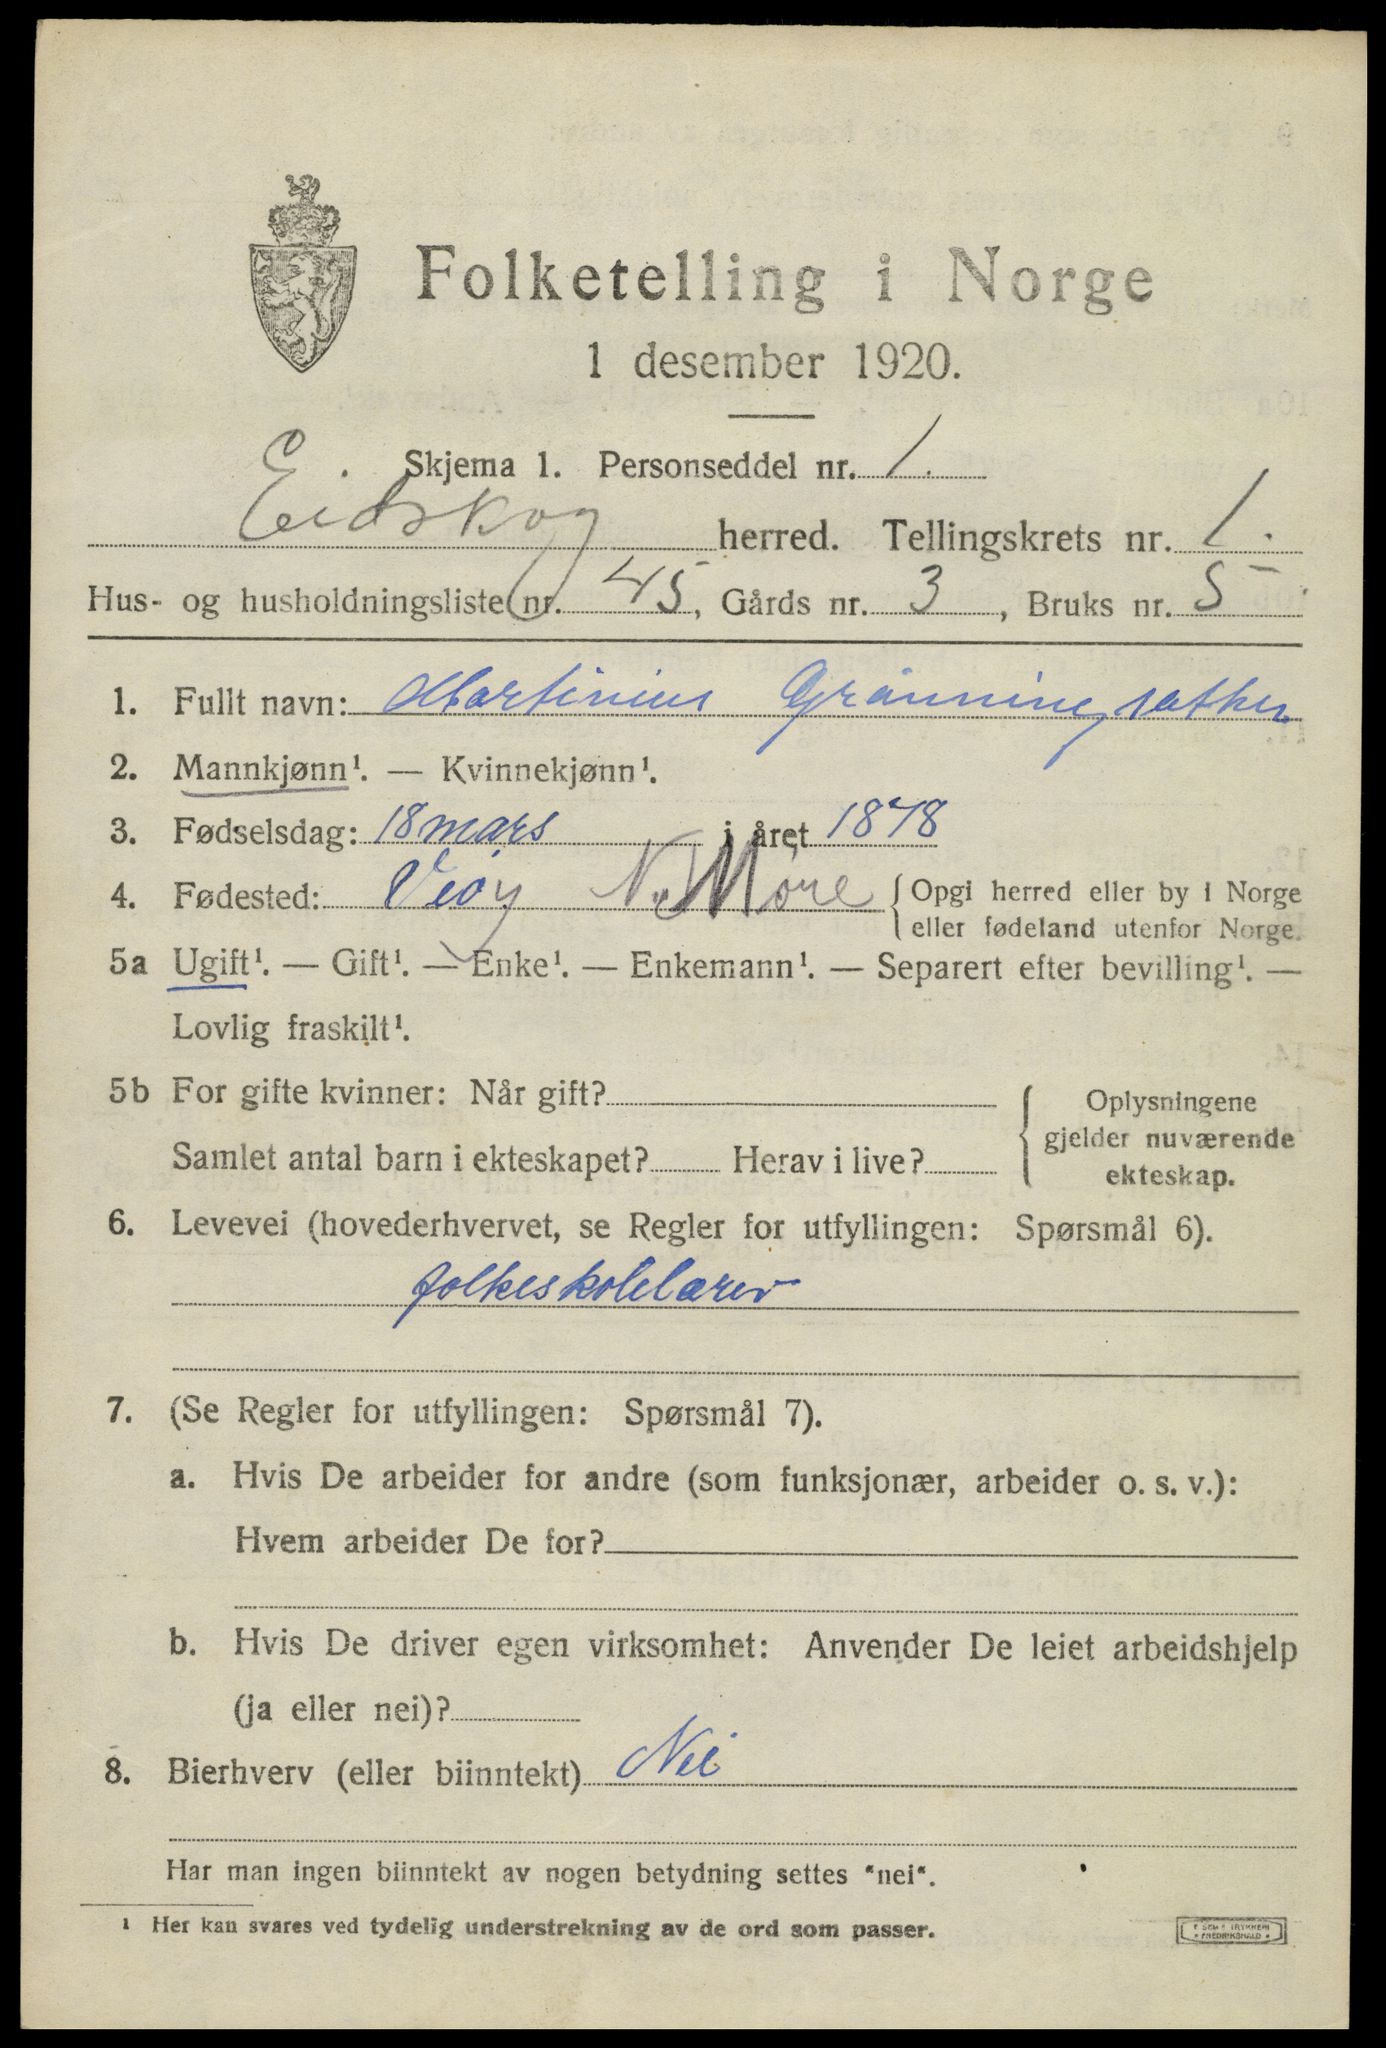 Folketelling i Norge
1 desember 1920.
Skjema 1. Personseddel nr. 1.
Eidskog herred. Tellingskrets nr. 1.
Hus- og husholdningsliste nr. 45, Gårds nr. 3, Bruks nr. 5
1. Fullt navn: Martinius Grønningsæther
2. Mannkjønn¹. — Kvinnekjønn¹.
3. Fødselsdag: 18 mars i året 1878
4. Fødested: Veøy N. Møre { Opgi herred eller by i Norge
eller fødeland utenfor Norge.
5a Ugift¹. — Gift¹. — Enke¹. — Enkemann¹. — Separert efter bevilling¹. —
Lovlig fraskilt¹.
5b For gifte kvinner: Når gift?
Samlet antal barn i ekteskapet? Herav i live?
{ Oplysningene
gjelder nuværende
ekteskap.
6. Levevei (hovederhvervet, se Regler for utfyllingen: Spørsmål 6).
folkeskolelærer
7. (Se Regler for utfyllingen: Spørsmål 7).
a. Hvis De arbeider for andre (som funksjonær, arbeider o. s. v.):
Hvem arbeider De for?
b. Hvis De driver egen virksomhet: Anvender De leiet arbeidshjelp
(ja eller nei)?
8. Bierhverv (eller biinntekt) Nei
Har man ingen biinntekt av nogen betydning settes "nei".
¹ Her kan svares ved tydelig understrekning av de ord som passer.